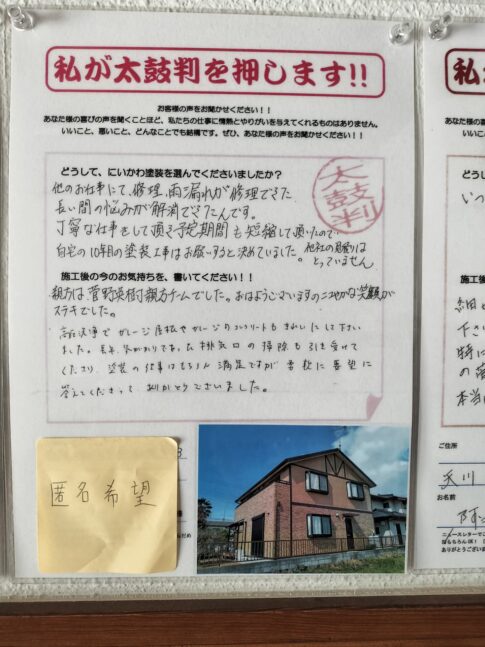 私が太鼓判を押します!!
お客様の声をお聞かせください!!
あなた様の喜びの声を聞くことほど、私たちの仕事に情熱とやりがいを与えてくれるものはありません。
いいこと、悪いこと、どんなことでも結構です。ぜひ、あなた様の声をお聞かせください!!
どうして、にいかわ塗装を選んでくださいましたか?
太鼓判
他のお仕事にて、修理、雨漏れが修理できた
長い間の悩みが解消できたんです。
丁寧な仕事をして頂き予定期間も短縮して頂いたので
自宅の10年目の塗装工事はお願いすると決めていました。他社の見積りは
とっていません
施工後の今のお気持ちを、書いてください!!
親方は、菅野英樹親方チームでした。おはようございますのニコやかな笑顔が
ステキでした。
高圧洗浄でガレージ屋根やガレージのコンクリートもきれいにして下さい
ました。長年、気がかりであった排気口の掃除も引き受けて
くださり、塗装の仕事はもちろん満足ですが柔軟に要望に
答えてくださって ありがとうございました。
匿名希望
私
お客
あなた様の喜びの
いいこと、悪い
どうし
いつ
施工後
下さ
特に
の
本当
ご住所
お名前
ニュースレターでこ
ありがとうござい